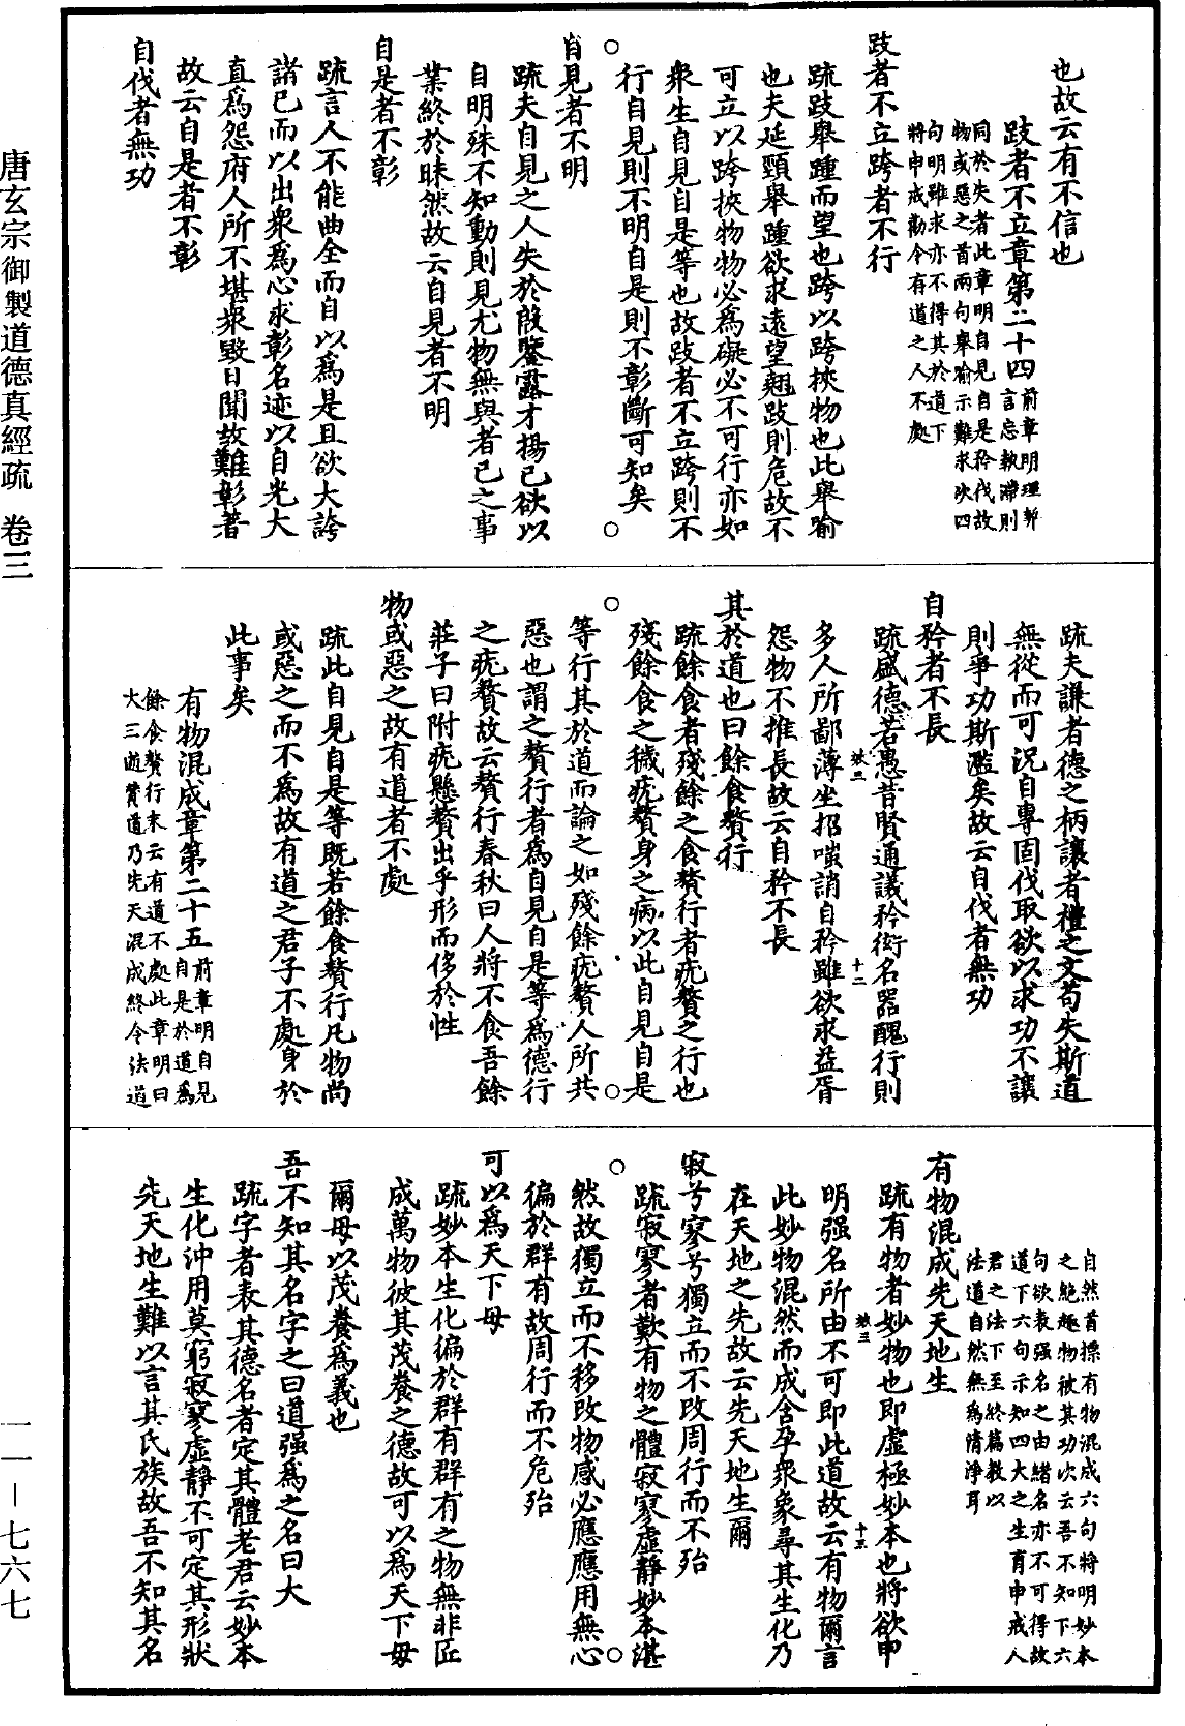 也故云有不信也
跂者不立章第二十四
前章明理暫
言忘執滯則
同於失者此章明自見自是矜伐故
物或惡之首兩句舉喻示難求次四
句明雖求亦不得其於道下
將申戒勸令有道之人不處
跂者不立跨者不行
疏跂舉踵而望也跨以跨挾物也此舉喻
也夫延頸舉踵欲求遠望翹跂則危故不
可立以跨挾物物必為礙必不可行亦如
衆生自見自是等也故跂者不立跨則不
行自見則不明自是則不彰斷可知矣
自見者不明
疏夫自見之人失於殷鑒露才揚己欲以
自明殊不知動則見尤物無與者已之事
業終於昧然故云自見者不明
自是者不彰
疏言人不能曲全而自以為是且欲大誇
諸己而以出衆為心求彰名迹以自光大
直為怨府人所不堪衆毀日聞故難彰著
故云自是者不彰
自伐者無功
疏夫謙者德之柄讓者禮之文苟失斯道
無從而可況自專固伐取欲以求功不讓
則爭功斯濫矣故云自伐者無功
自矜者不長
疏盛德若愚昔賢通議矜衒名器醜行則
多人所鄙薄坐招嗤誚自矜雖欲求益胥
怨物不推長故云自矜不長
其於道也曰餘食贅行
疏餘食者殘餘之食贅行者疣贅之行也
殘餘食之穢疣贅身之病以此自見自是
等行其於道而論之如殘餘疣贅人所共
惡也謂之贅行者為自見自是等為德行
之疣贅故云贅行春秋曰人將不食吾餘
莊子曰附疣懸贅出乎形而侈於性
物或惡之故有道者不處
疏此自見自是等既若餘食贅行凡物尚
或惡之而不為故有道之君子不處身於
此事矣
有物混成章第二十五
前章明自見
自是於道為
餘食贅行末云有道不處此章明曰
大三逝贊道乃先天混成終令法道
自然首摽有物混成六句將明妙本
之絕趣物被其功次云吾不知下六
句欲表强名之由緒名亦不可得故
道下六句示知四大之生育申戒人
君之法下至終篇教以
法道自然無為清淨耳
有物混成先天地生
疏有物者妙物也即虛極妙本也將欲申
明强名所由不可即此道故云有物爾言
此妙物混然而成含孕衆象尋其生化乃
在天地之先故云先天地生爾
寂兮寥兮獨立而不改周行而不殆
疏寂寥者歎有物之體寂寥虛靜妙本湛
然故獨立而不移改物感必應應用無心
徧於群有故周行而不危殆
可以為天下母
疏妙本生化徧於群有群有之物無非匠
成萬物彼其茂養之德故可以為天下母
爾母以茂養為義也
吾不知其名字之曰道强為之名曰大
疏字者表其德名者定其體老君云妙本
生化沖用莫窮寂寥虛靜不可定其形狀
先天地生難以言其氏族故吾不知其名
唐玄宗御製道德真經疏 卷三
一一—七六七